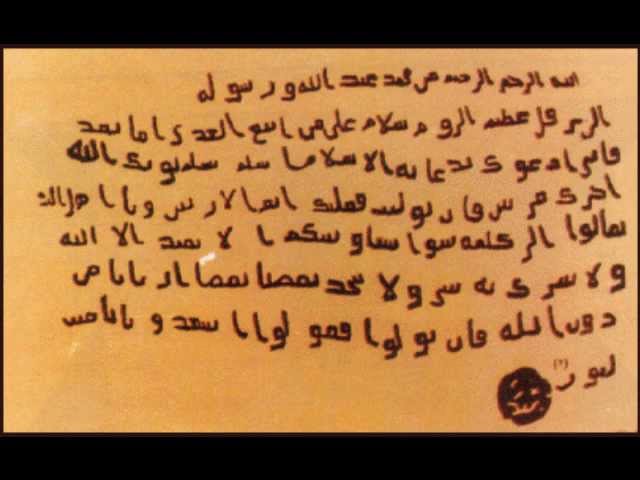 الله الرحمن الرحيم من محمد عبد الله ورسوله
الى هرقل عظيم الروم سلام على من اتبع الهدى اما بعد
فاني ادعوك بدعاية الاسلام اسلم تسلم يوتك الله
اجرك مرتين فان توليت فعليك اثم الاريسين ويا اهل الك
تعالوا الى كلمة سوا بيننا وبينكم ا لا نعبد الا الله
ولا نشرك به شي ولا يتخذ بعضنا بعضا اربابا من
دون الله فان تولوا فقولوا اشهدو بانا مس
لمون (٢)